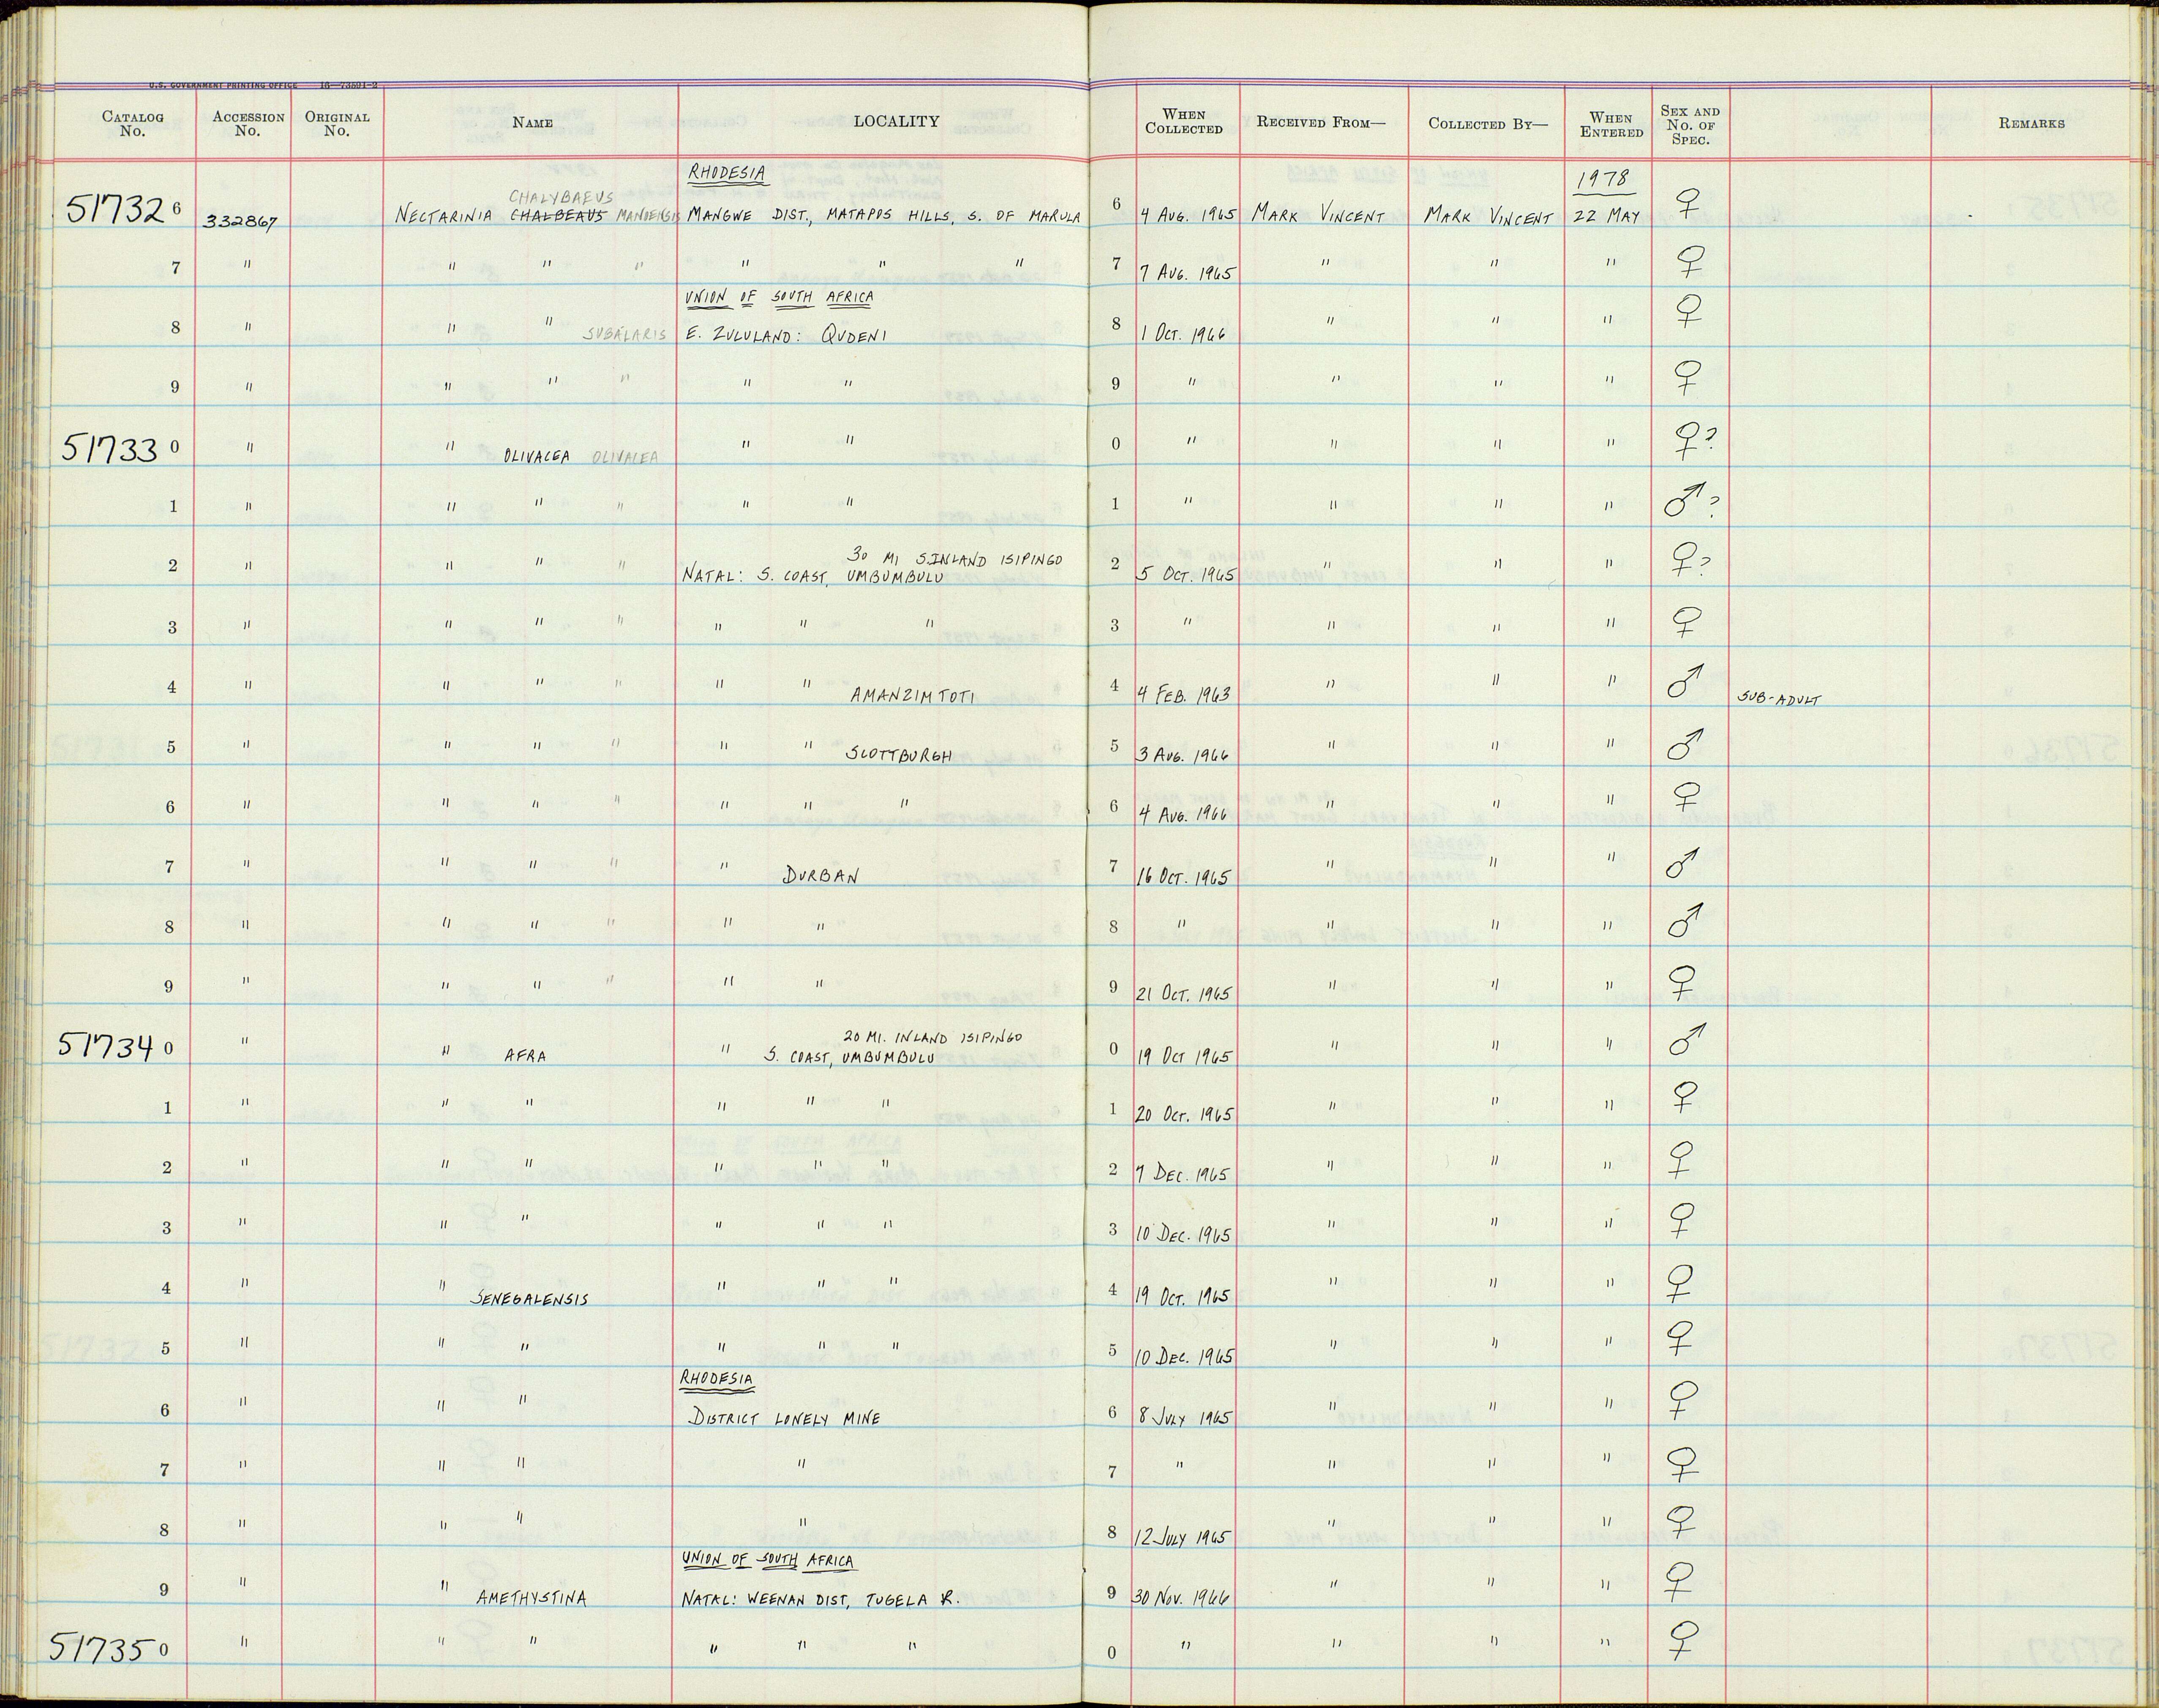 U.S. GOVERNMENT PRINTING OFFICE 16—73891-2
CATALOG No. ACCESSION No. ORIGINAL No. NAME LOCALITY WHEN COLLECTED RECEIVED FROM— COLLECTED BY— WHEN ENTERED SEX AND No. OF SPEC. REMARKS
RHODESIA 1978
CHALYBAEUS
517326 332867 NECTARINIA CHALBEAUS MANOENSIS MANGWE DIST., MATAPOS HILLS, S. OF MARULA 6 4 AUG. 1965 MARK VINCENT MARK VINCENT 22 MAY ♀
7 " " " " " " " 7 7 AUG. 1965 " " " ♀
UNION OF SOUTH AFRICA
8 " " " SUBALARIS E. ZULULAND: QUDENI 8 1 OCT. 1966 " " " ♀
9 " " " " " " 9 " " " " ♀
517330 " " OLIVACEA OLIVALEA " " 0 " " " " ♀?
1 " " " " " " 1 " " " " ♂?
30 MI S.INLAND ISIPINGO
2 " " " " NATAL: S. COAST, UMBUMBULU 2 5 OCT. 1965 " " " ♀?
3 " " " " " " " 3 " " " " ♀
4 " " " " " " AMANZIMTOTI 4 4 FEB. 1963 " " " ♂ SUB-ADULT
5 " " " " " " SCOTTBURGH 5 3 AUG. 1966 " " " ♂
6 " " " " " " " 6 4 AUG. 1966 " " " ♀
7 " " " " " DURBAN 7 16 OCT. 1965 " " " ♂
8 " " " " " " 8 " " " " ♂
9 " " " " " " 9 21 OCT. 1965 " " " ♀
20 MI. INLAND ISIPINGO
517340 " " AFRA " S. COAST, UMBUMBULU 0 19 OCT 1965 " " " ♂
1 " " " " " " 1 20 OCT. 1965 " " " ♀
2 " " " " " " 2 7 DEC. 1965 " " " ♀
3 " " " " " " 3 10 DEC. 1965 " " " ♀
4 " " SENEGALENSIS " " " 4 19 OCT. 1965 " " " ♀
5 " " " " " " 5 10 DEC. 1965 " " " ♀
RHODESIA
6 " " " DISTRICT LONELY MINE 6 8 JULY 1965 " " " ♀
7 " " " " 7 " " " " ♀
8 " " " " 8 12 JULY 1965 " " " ♀
UNION OF SOUTH AFRICA
9 " " AMETHYSTINA NATAL: WEENAN DIST, TUGELA R. 9 30 NOV. 1966 " " " ♀
517350 " " " " " " 0 " " " " ♀